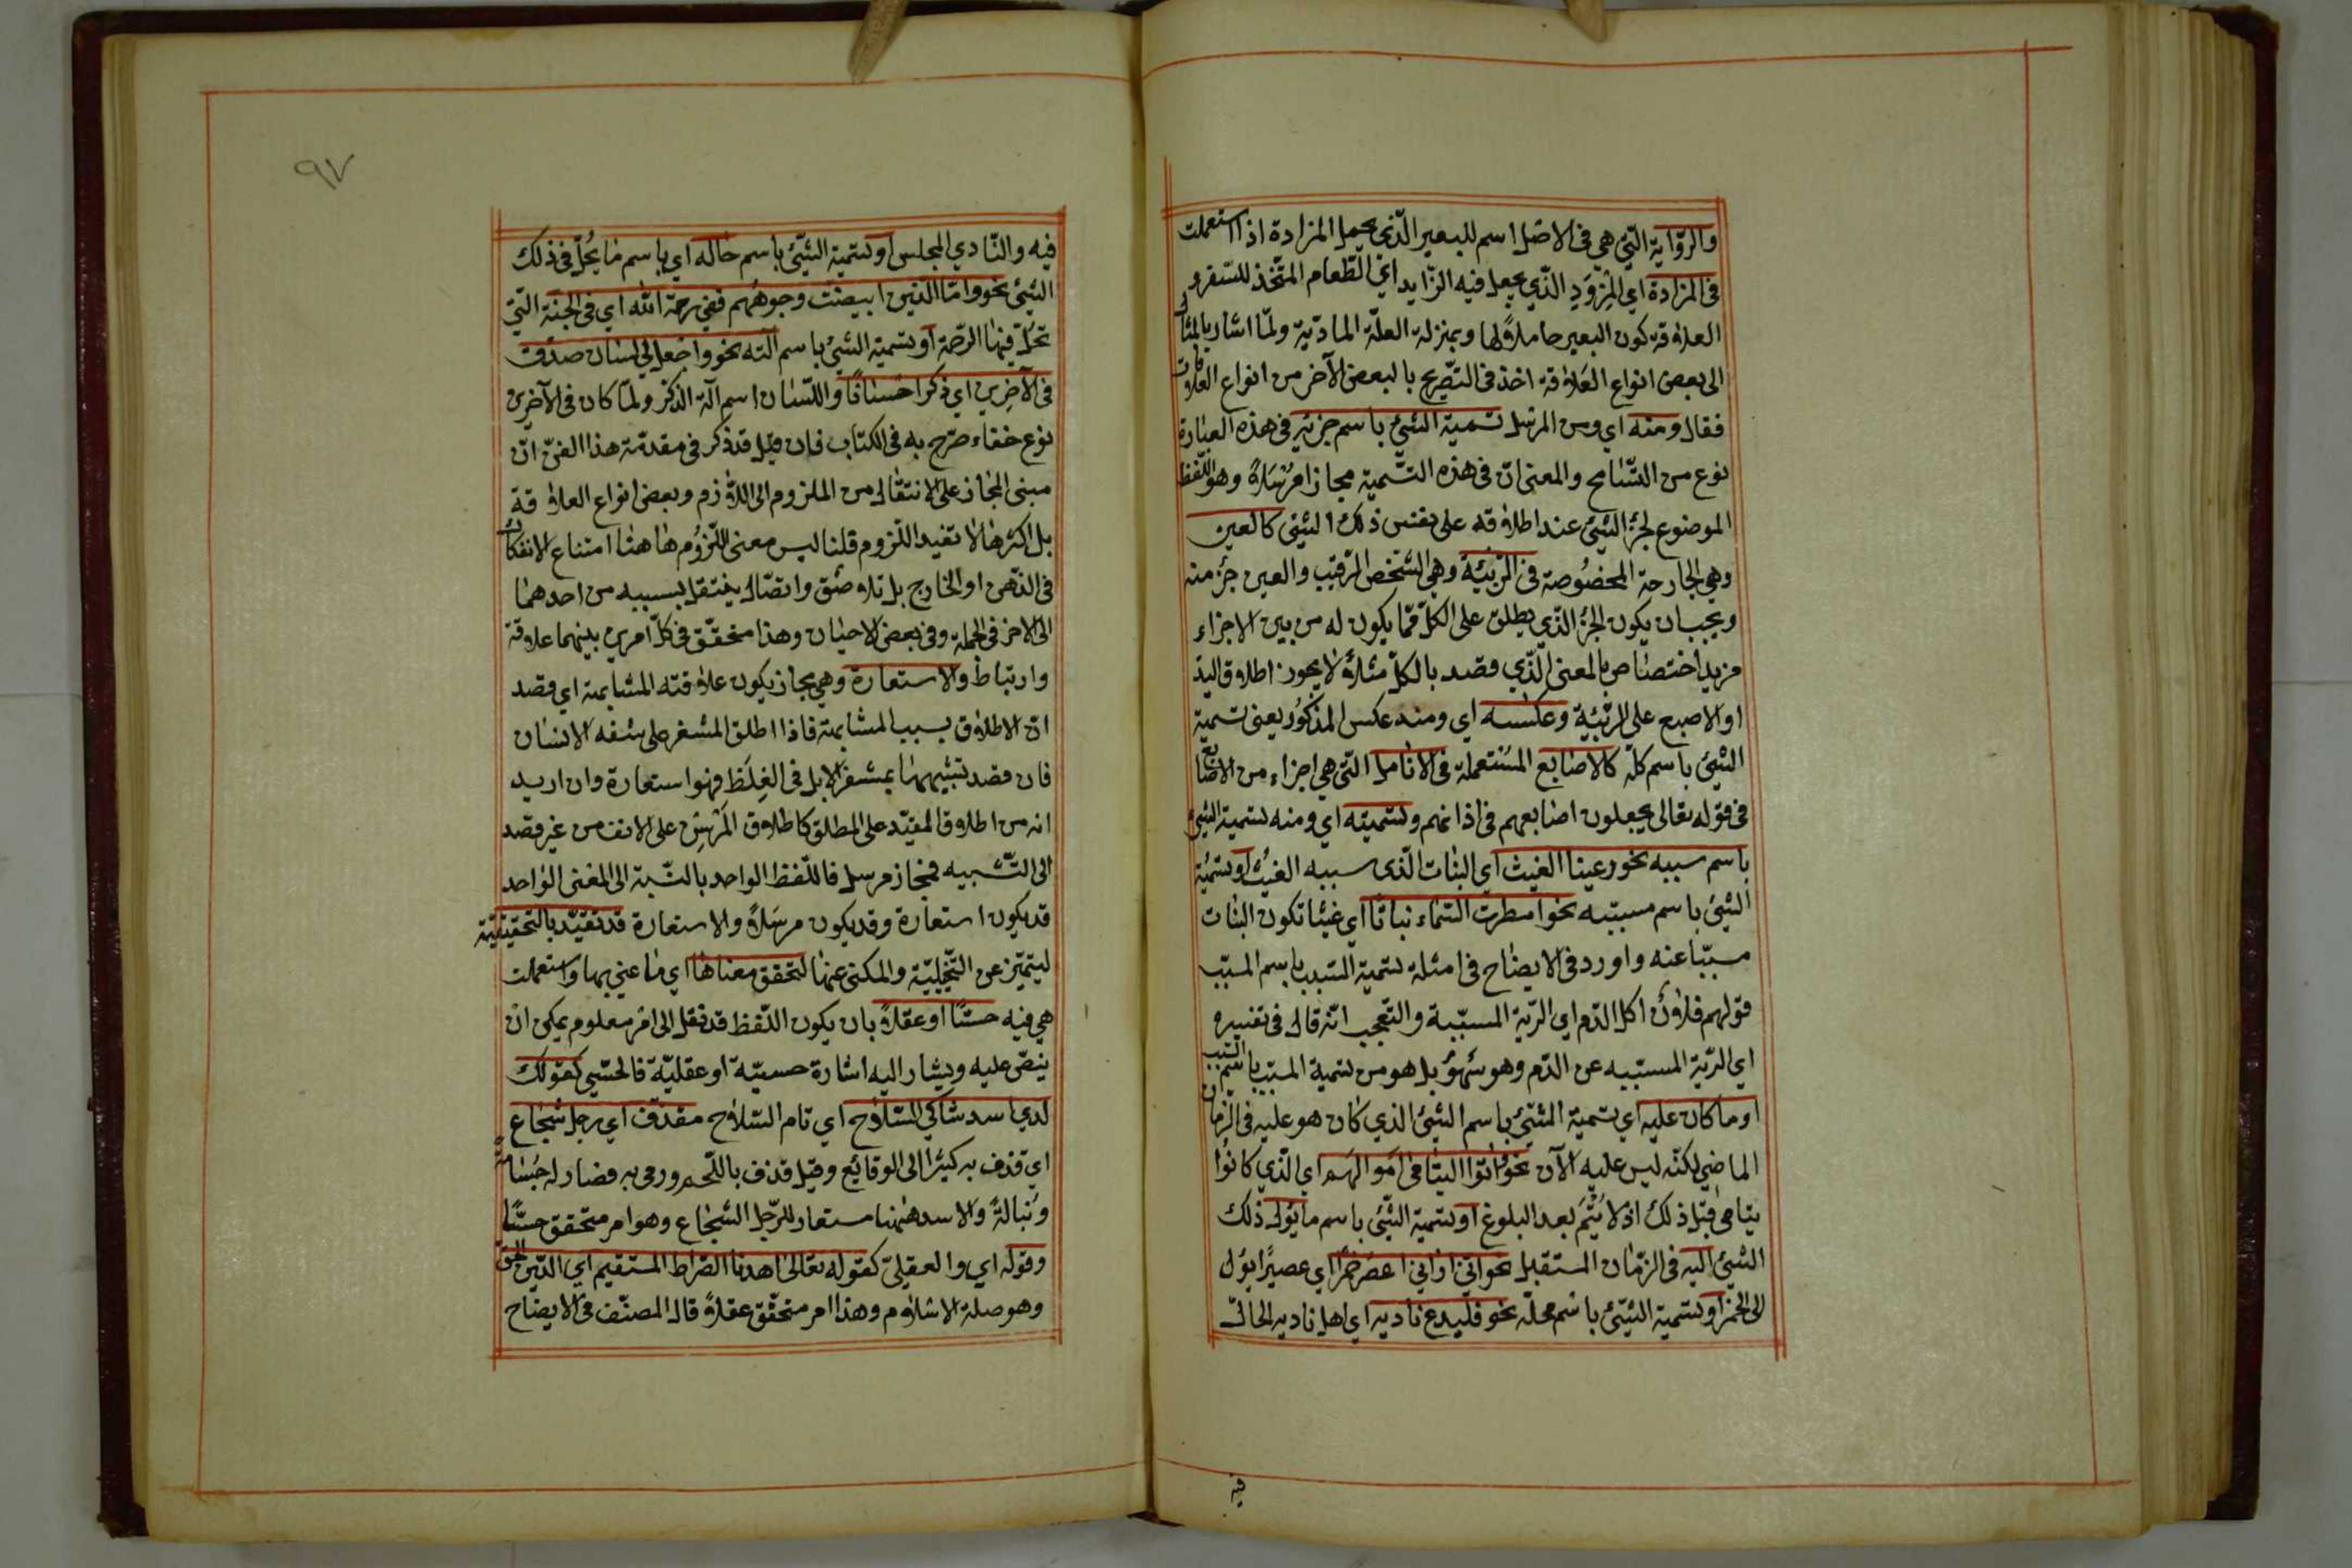 والرّواية الّتي هي في الاصل اسم للبعير الّذي يحمل المزادة اذا استعملت
في المزادة اي المِزوَدِ الّذي يجعل فيه الزّاد اي الطّعام المتّخذ للسّفر و
العلاقة كون البعير حاملاً لها وبمنزلة العلّة المادّية ولمّا اشار بالمثال
الى بعض انواع العَلاقة اخذ في التّصريح بالبعض الآخر من انواع العلاقات
فقال ومنه اي ومن المرسل تسمية الشّئ باسم جزئه في هذه العبارة
نوع من التّسامح والمعنى انّ في هذه التّسمية مجازا مرسَلاً وهو اللّفظ
الموضوع لجزء الشّئ عند اطلاقه على نفس ذلك الشّئ كالعين
وهي الجارحة المخصُوصة في الرّبيئة وهي الشّخص الرّقيب والعين جزء منه
ويجب ان يكون الجزء الّذي يطلق على الكلّ ممّا يكون له من بين الاجزاء
مزيد اختصاص بالمعنى الّذي قصد بالكلّ مثلاً لا يجوز اطلاق اليد
او الاصبع على الرّبئية وعكسه اي ومنه عكس المذكُور يعنى تسمية
الشّئ باسم كلّه كالاصابع المُستعملة في الانامل الّتي هي اجزاء من الاصابع
في قوله تعالى يجعلون اصابعهم في اذانهم وتسميته اي ومنه تسمية الشّئ
باسم سببه نحو رعينا الغيث اي النبات الّذي سببه الغيثُ او تسمية
الشّئ باسم مسببه نحو امطرت السّماء نباتا اي غيثا تكون النبات
مسبّبا عنه واورد في الايضاح في امثلة تسمية السّبب باسم المسبّب
قولهم فلاَن اكل الدّم اي الدّية المسبّبة والتّعجب انّه قال في تفسيره
اي الدّية المسبّبه عن الدّم وهو سَهوٌ بل هو من تسمية المسبّب باسم السّبب
او ما كان عليه اي تسمية الشّئ باسم الشّئ الذي كان هو عليه في الزّمان
الماضي لكنّه ليس عليه الآن نحو وآتوا اليتامى امَوالهُم اي الّذي كانُوا
يتامى قبل ذلك اذ لا يُتمَ بعد البلوغ او تسمية الشّئ باسم ما يؤل ذلك
الشّئ اليه في الزّمان المستقبل نحو انّي اراني اعصر خمرًا اي عصيرًا يؤل
الى الخمر او تسمية الشّئ باسم محلّه نحو فليدع ناديه اي اهل ناديه الحالّ
فيه
٩٧
فيه والنّادي المجلس او تسمية الشّئ باسم حاله اي باسم ما يُحلّ في ذلك
الشّئ نحو وامّا الذين ابيضّت وجوهُهُم ففي رحمة الله اي في الجنّة الّتي
تحلّ فيها الرحمة او تسمية الشّئ باسم آلته نحو واجعل لي لسان صدق
في الآخِرين اي ذكرا حَسنًا فا واللّسَان اسم آلة الذّكر ولمّا كان في الآخرين
نوع خفاء صرّح به في الكتاب فان قيل قد ذكر في مقدّمة هذا الفنّ انّ
مبنى المجاز على الانتقال من الملزوم الى اللاّزم وبعض انواع العلاقة
بل اكثرها لا تفيد اللّزوم قلنا ليس معنى اللّزُوم هاهنا امتناع الانفكاك
في الذّهن او الخارج بل تلاصُق واتصّال ينتقل بسببه من احدهما
الى الاخر في الجملة وفي بعض الاحيان وهذا متحقّق في كلّ امرين بينهما علاقة
وارتباط والاستعارة وهي مجاز يكون علاقته المشابهة اي قصد
انّ الاطلاق بسبب المشابهة فاذا اطلق المشفر على شفة الانسان
فان قصد تشبيهها بمشفر الابل في الغِلَظ فهو استعارة وان اريد
انه من اطلاق المقيّد على المطلق كاطلاق المَرسِن على الانف من غير قصد
الى التّشبيه فمجاز مرسل فاللّفظ الواحد بالنّسبة الى المعنى الواحد
قد يكون استعارة وقد يكون مرسَلاً والاستعارة قد تقيّد بالتّحقيقيّة
ليتميّز عن التّخيليّة والمكنى عنها لتحقق معناها اي ما عني بها واستعملت
هي فيه حسّا او عقلاً بان يكون اللّفظ قد نقل الى امر معلوم يمكن ان
ينصّ عليه ويشار اليه اشارة حسيّة او عقليّة فالحسّي كقولك
لدي اسد شاكي السّلاح اي تام السّلاح مقذّف اي رجل شجاع
اي قذف به كثيرًا الى الوقائع وقيل قذف باللّحم ورمى به فصار له جَسَامةً
ونَبالةً والاسد هيهنا مستعار للرّجل الشّجاع وهو امر متحقق حسًّا
وقوله اي والعقليّ كقوله تعالى اهدنا الصّراط المستقيم اي الدّين الحق
وهو صلة الاسلاَم وهذا امر متحقّق عقلاً قال المصنّف في الايضاح